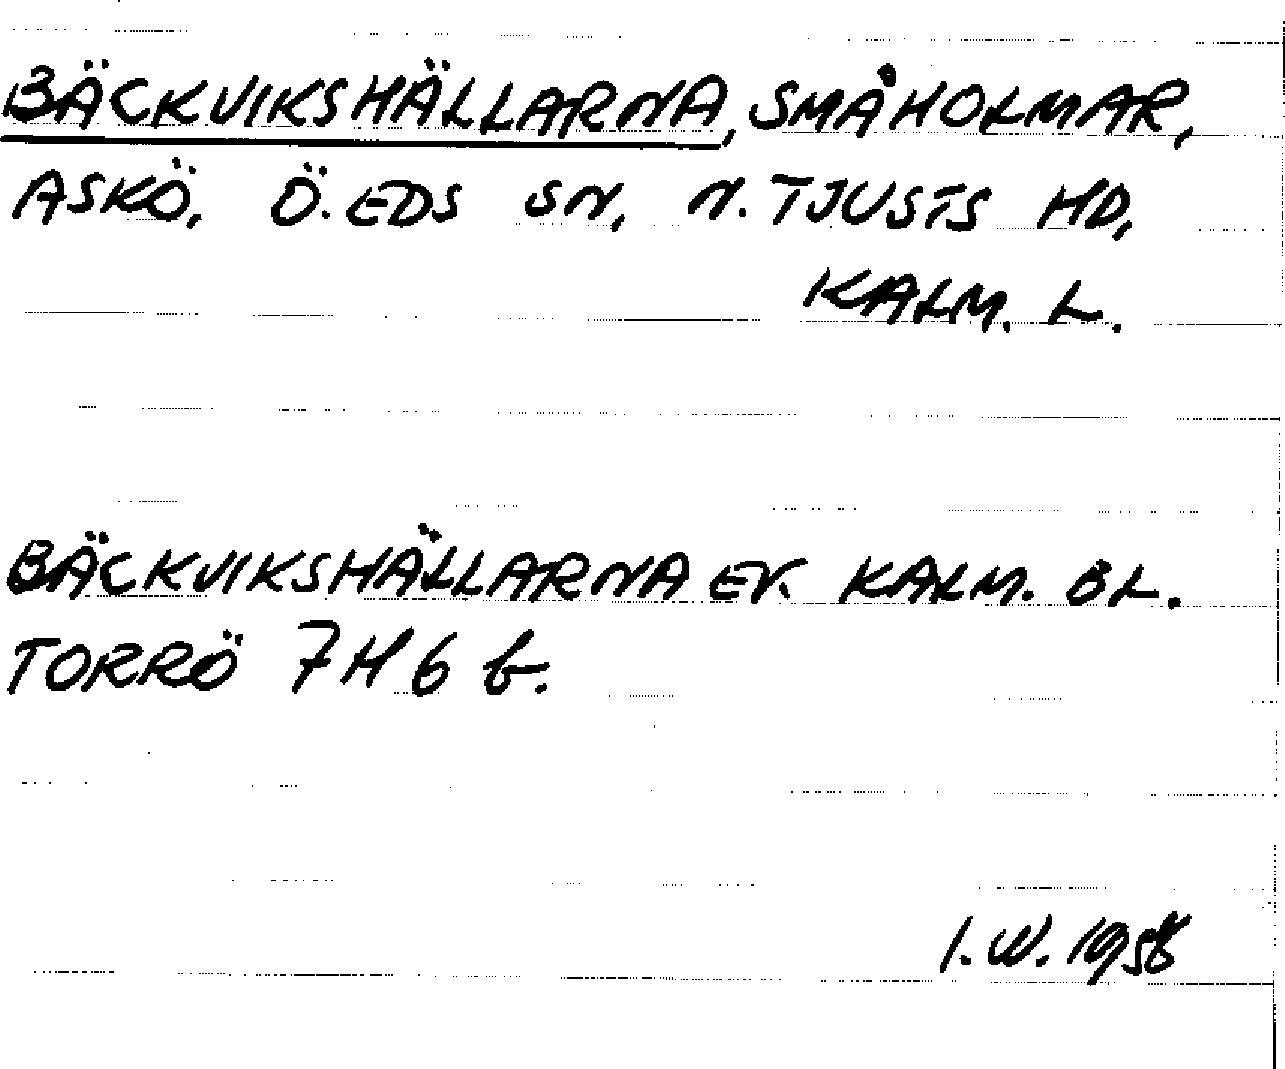 BÄCKVIKSHÄLLARNA, SMÅHOLMAR,
ASKÖ, Ö. EDS SN, N. TJUSTS HD,
KALM. L.
BÄCKVIKSHÄLLARNA EK. KALM. BL.
TORRÖ 7H 6 b.
I. W. 1958